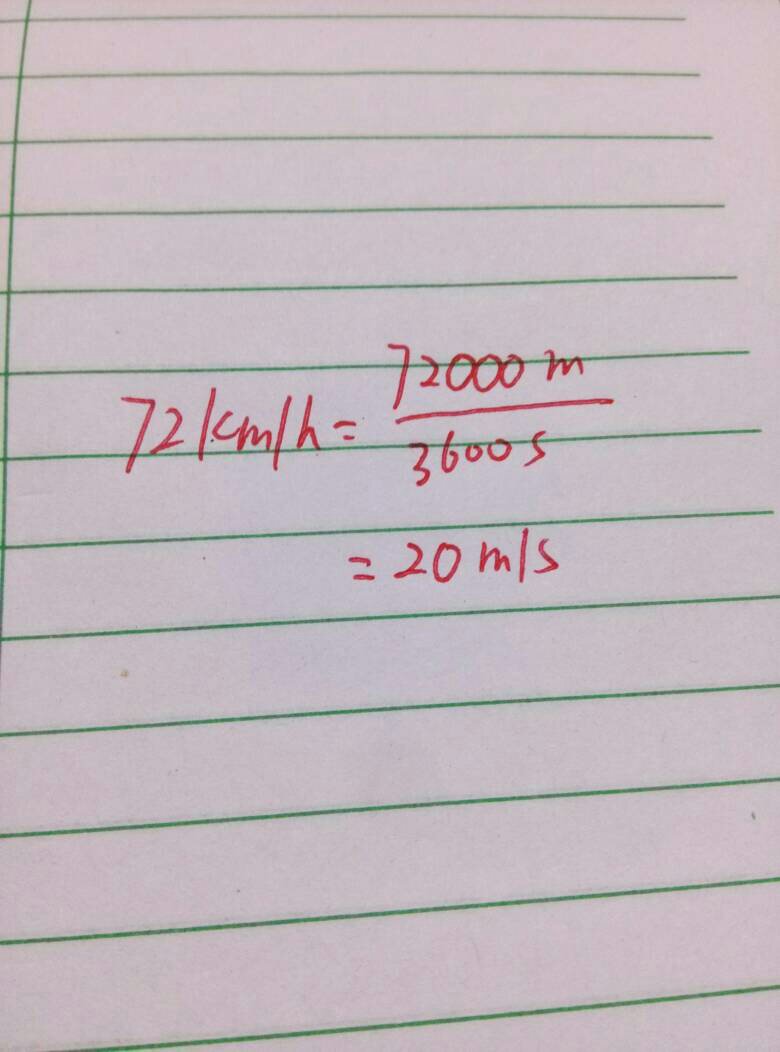 72km/h = 72000 m / 3600 s
= 20 m/s